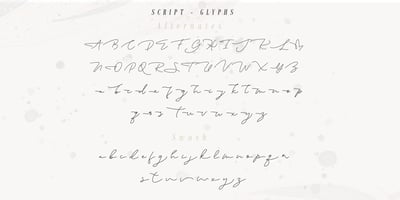 SCRIPT - GLYPHS
Alternates
A B C D E F G H I J K L M
N O P Q R S T U V W X Y Z
a b c d e f g h i j k l m n o p
q r s t u v w x y z
Swash
a b c d e f g h i j k l m n o p q r
s t u v w x y z